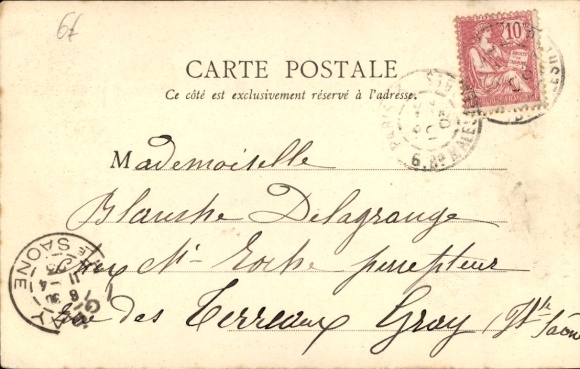 6f
CARTE POSTALE
Ce côté est exclusivement réservé à l'adresse.
10
Mademoiselle
Blanche Delagrange
chez Mr Roche percepteur
Rue des Terreaux Gray (Hte Saône
GRAY
Hte SAÔNE